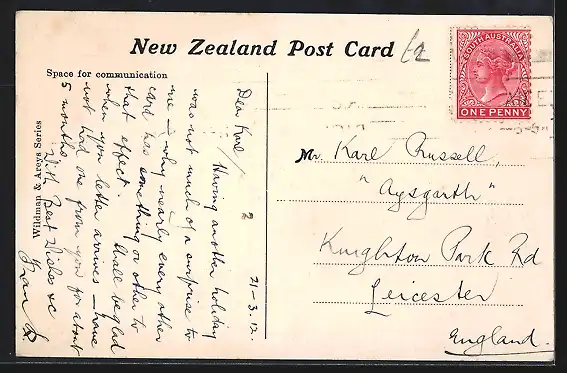 New Zealand Post Card
Space for communication
SOUTH AUSTRALIA
ONE PENNY
Wildman & Areys Series
21-3.12.
Dear Karl/
Having another holiday
was not much of a surprise to
me - why nearly every other
card has something or other to
that effect. Shall be glad
when you letter arrives - have
not had one from you for about
5 months.
With Best Wishes &c
Mr. Karl Russell,
"Aysgarth"
Knighton Park Rd
Leicester
England.